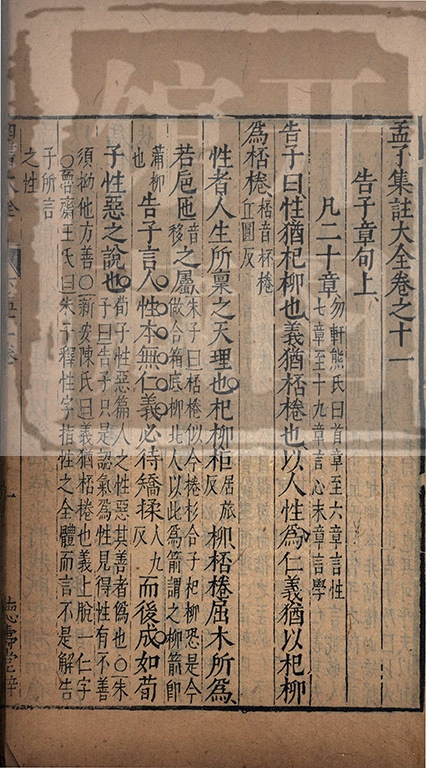 孟子集註大全卷之十一
告子章句上
凡二十章 勿軒熊氏曰首章至六章言性
七章至十九章言心末章言學
告子曰性猶杞柳也義猶桮棬也以人性為仁義猶以杞柳
為桮棬 桮音杯棬
丘圓反
性者人生所稟之天理也杞柳柜 居旅
反 柳桮棬屈木所為
若巵匜 音
移 之屬 朱子曰桮棬似今棬杉合子杞柳恐是今
做合箱底柳北人以此為箭謂之柳箭即
蒲柳
也 告子言人性本無仁義必待矯揉 人九
反 而後成如荀
子性惡之說也 荀子性惡篇人之性惡其善者偽也○朱
子曰告子只是認氣為性見得性有不善
須拗他方善○新安陳氏曰義猶桮棬也義上脫一仁字
○魯齋王氏曰朱子釋性字指性之全體而言不是解告
子所言
之性
四書大全
德壽堂梓